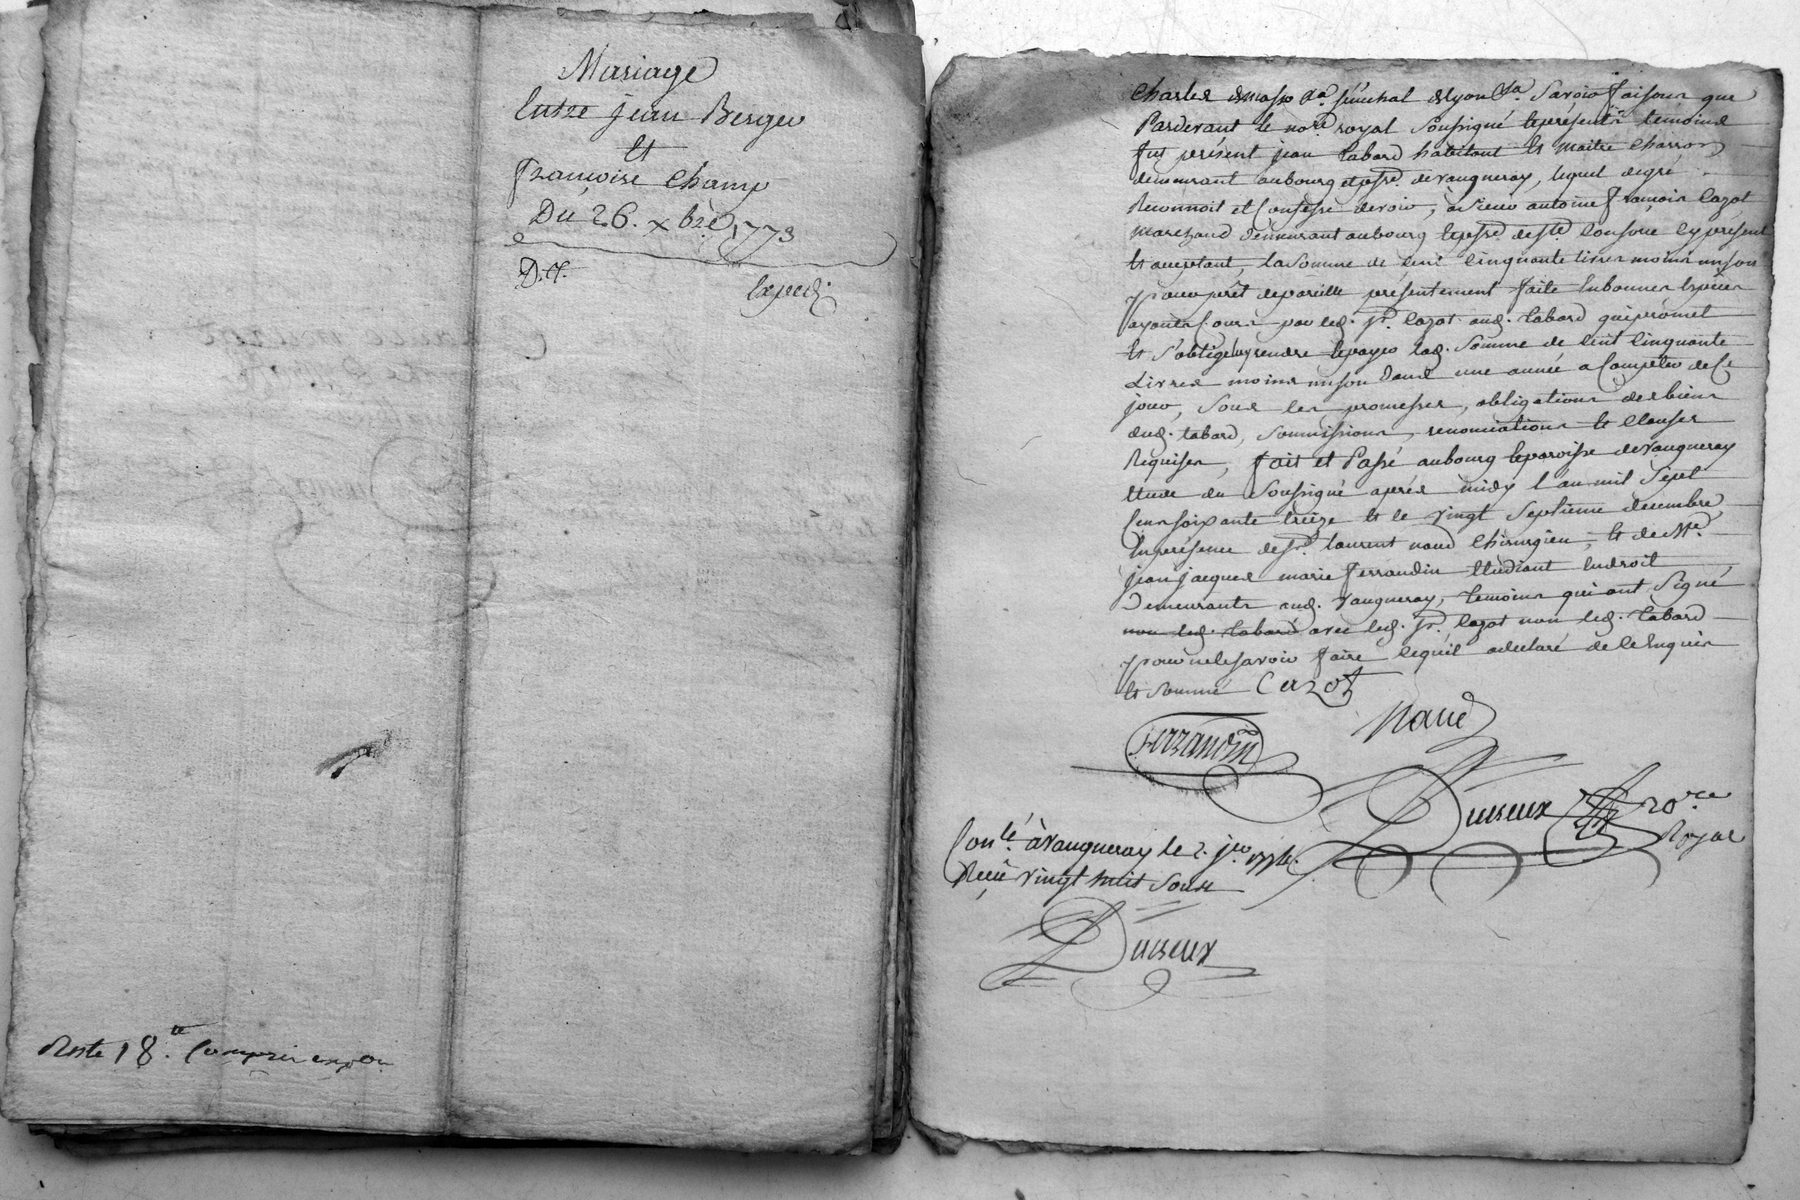 Mariage
Entre jean Berger
Et
françoise Champ
Du 26. xbre 1773
D. ct.
Expedi.
Reste 18.tt Compris expon
Charles demasso &a. sénechal delyon &a. Savoir faisons que
Pardevant le nore. royal soussigné et présents témoins
fut présent jean tabard habitant et maitre charron
demeurant aubourg et psse. devaugneray, lequel degré
Reconnoit et confesse devoir, à sieur antoine françois Cazot
Marchand demeurant aubourg et psse. de ste. Consorce cy présent
et acceptant, la somme de cent cinquante livres moins un sou
pour prêt depareille présentement faite en bonnes espèces
ayants cours par led. sr. Cazot aud. tabard qui promet
et s'oblige luy rendre et payer lad. somme de cent cinquante
Livres moins un sou dans une année a compter de ce
jour, sous les promesses, obligations des biens
dud. tabard, soumissions, renonciations et clauses
Requises, fait et Passé aubourg et paroisse devaugneray
Etude du soussigné après midy l'an mil sept
Cent soixante treize et le vingt septieme decembre,
En présence de sr. laurent naud chirurgien, et de Me.
jean jacques marie ferrandin Etudiant en droit
Demeurants aud. vaugneray, témoins qui ont signé
non led. tabard avec led. sr. Cazot non led. tabard
pour ne le savoir faire lequil a declaré de ce Enquis
et sommé Cazot
Naud
ferrandin
Duvieux nore
Royal
Conlé. à vaugneray le 2. jer. 1774.
Reçu vingt huit sous
Duvieux